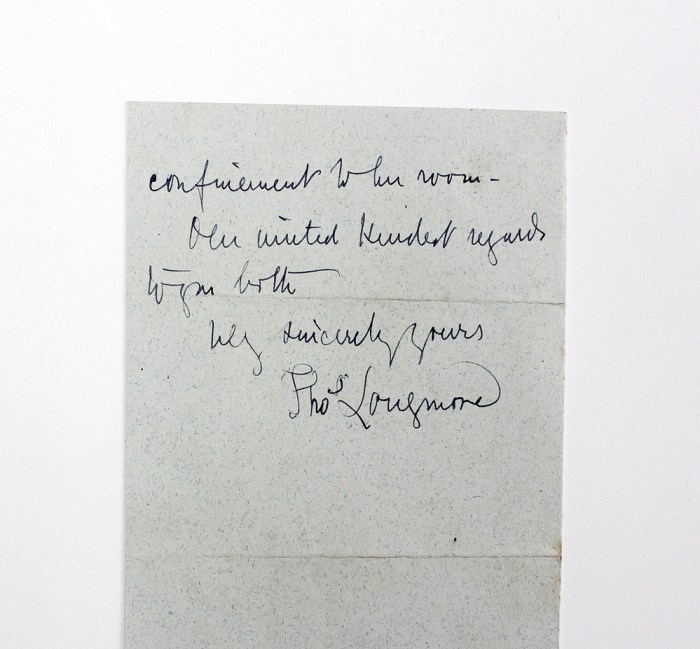 confinement to her room -
Our united kindest regards
to you both
Very sincerely yours
Thos Longmore